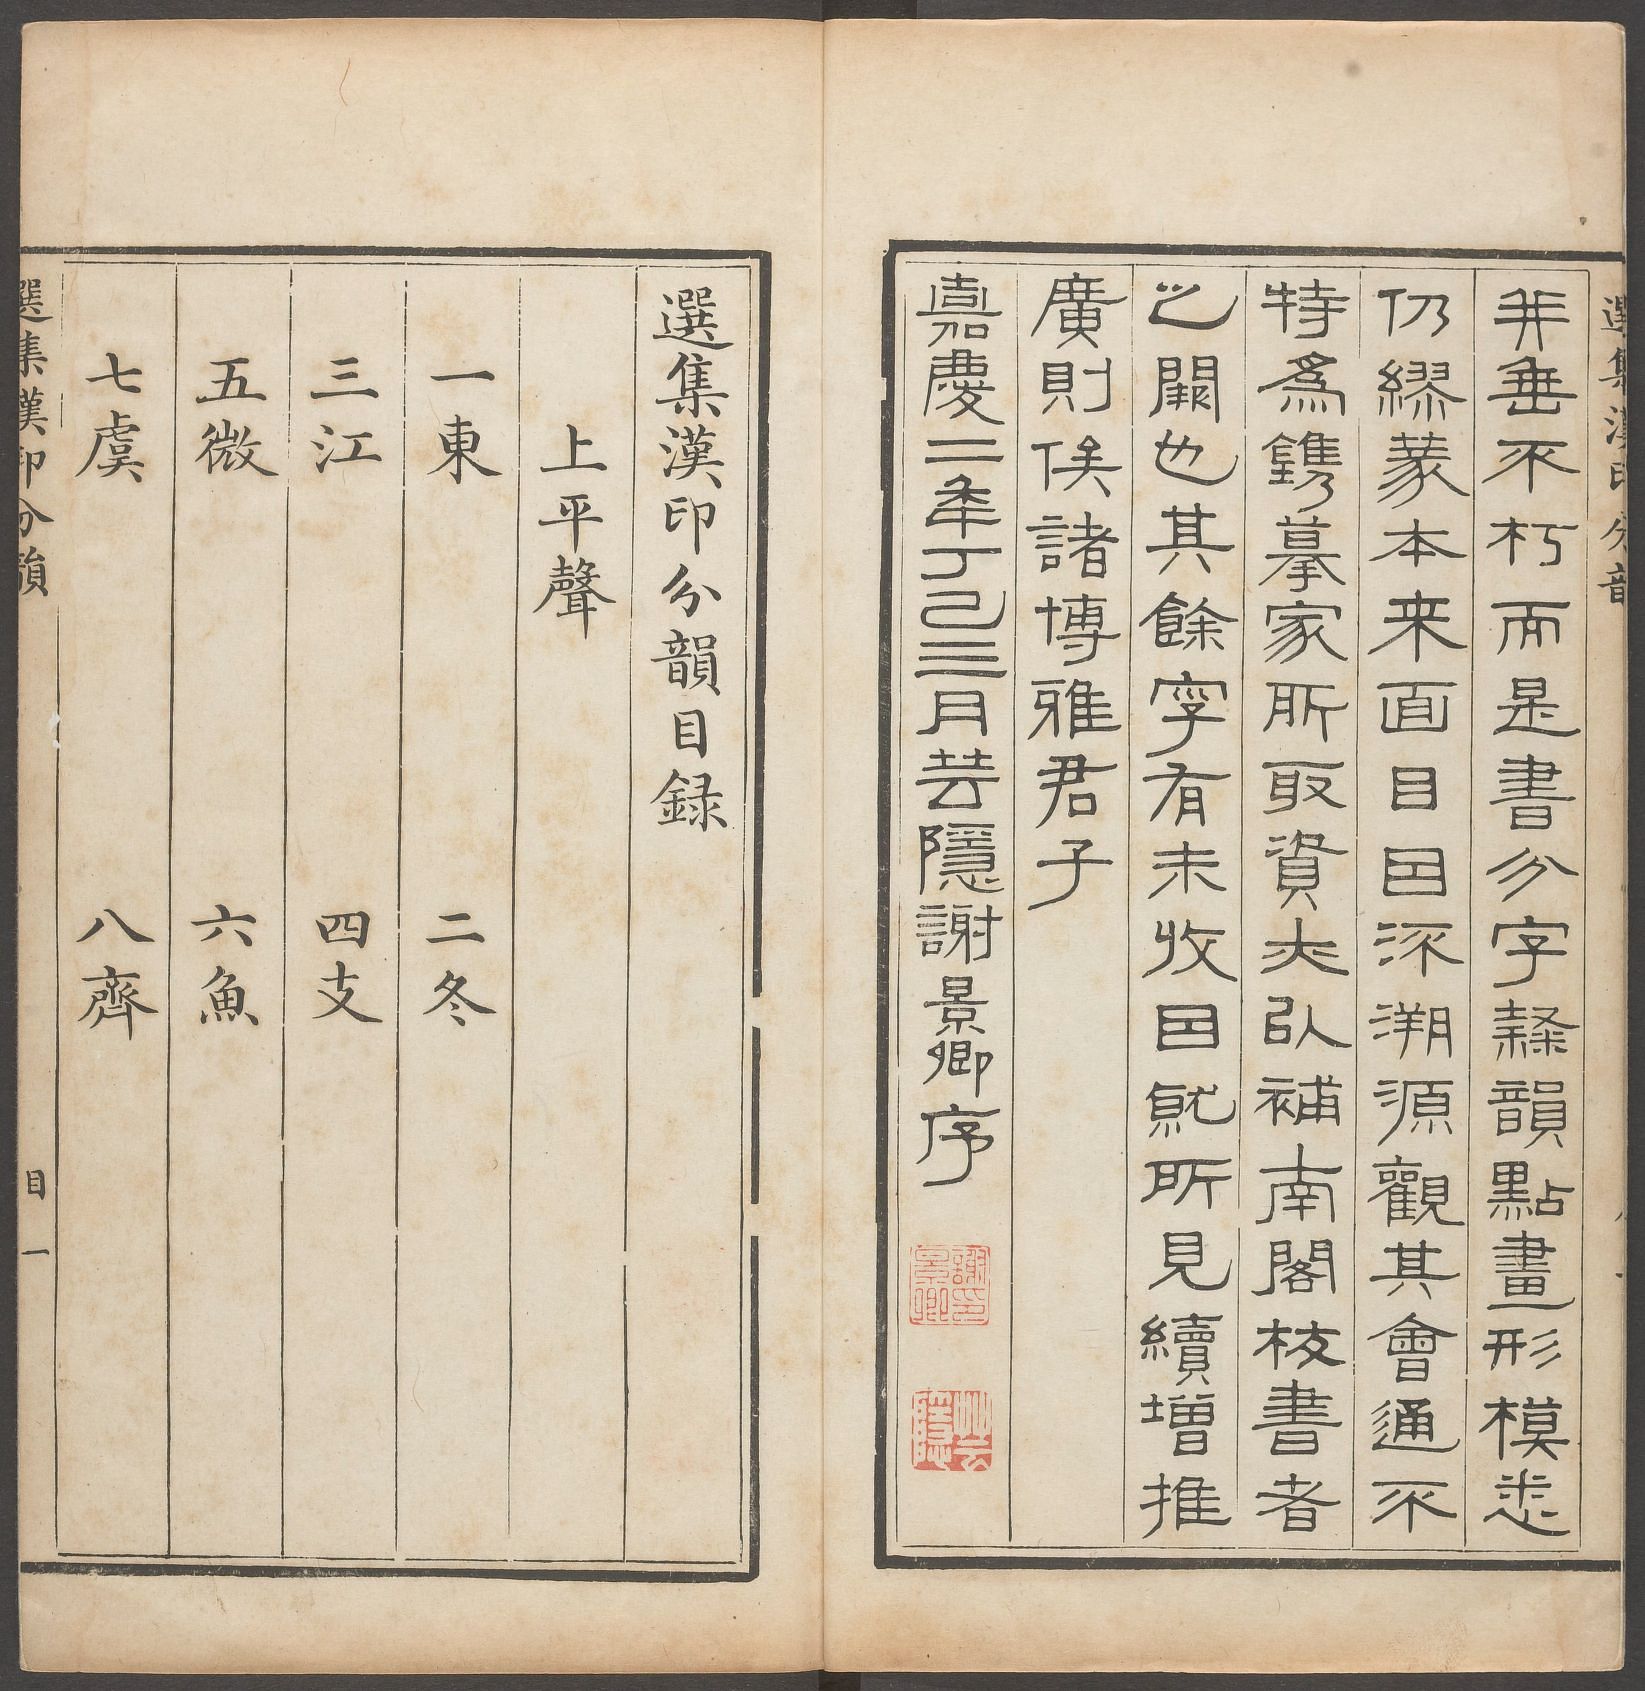 選集漢印分韻
并垂不朽而是書分字隸韻點畫形模悉
仍繆篆本来面目目沠溯源觀其會通不
特為鐫摹家所取資夫以補南閣校書者
之闕也其餘字有未收目就所見續增推
廣則俟諸博雅君子
嘉慶二年丁巳三月芸隱謝景卿序
謝景卿印
芸隱
選集漢印分韻目録
上平聲
一東 二冬
三江 四支
五微 六魚
七虞 八齊
選集漢印分韻 目一